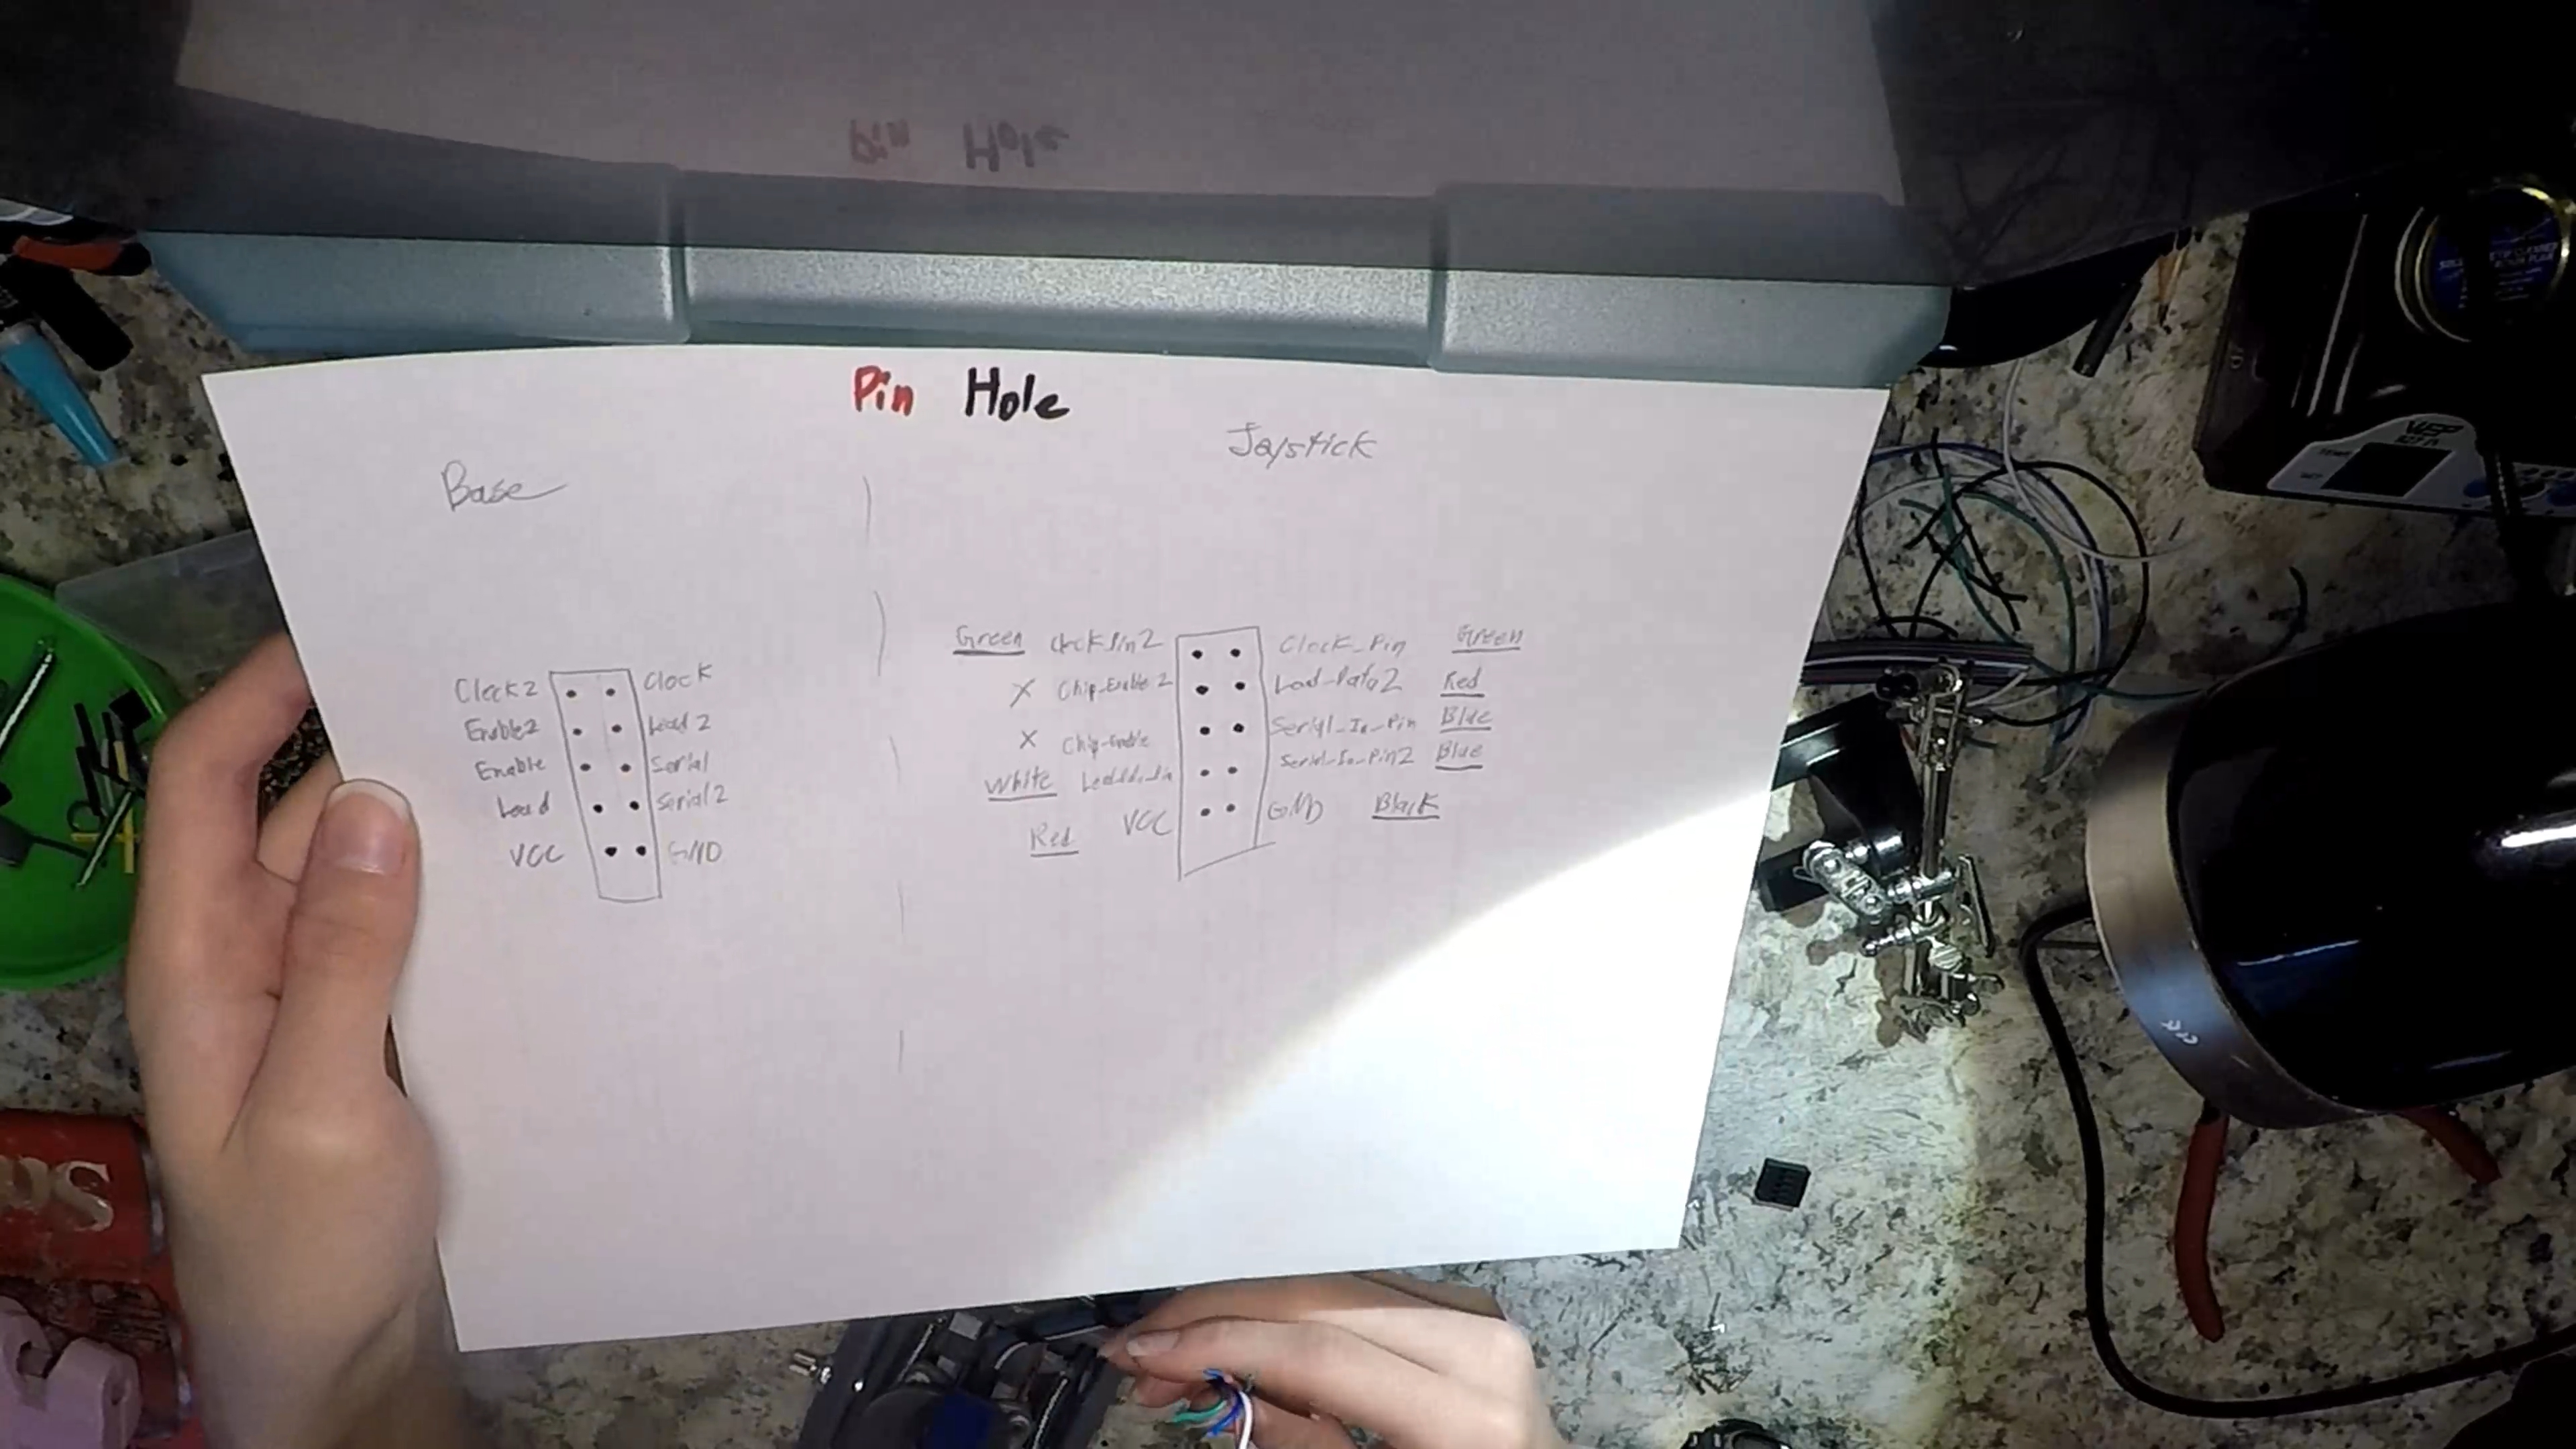 Pin Hole
Base
Joystick
Clock2 Clock
Enable2 Load 2
Enable Serial
Load Serial2
VCC GND
Green Clock Pin2 Clock_Pin Green
X Chip-Enable 2 Load_Data2 Red
X Chip-Enable Serial_In_Pin Blue
White Serial_In_Pin2 Blue
Red VCC GND Black
Pin Hole
WEP